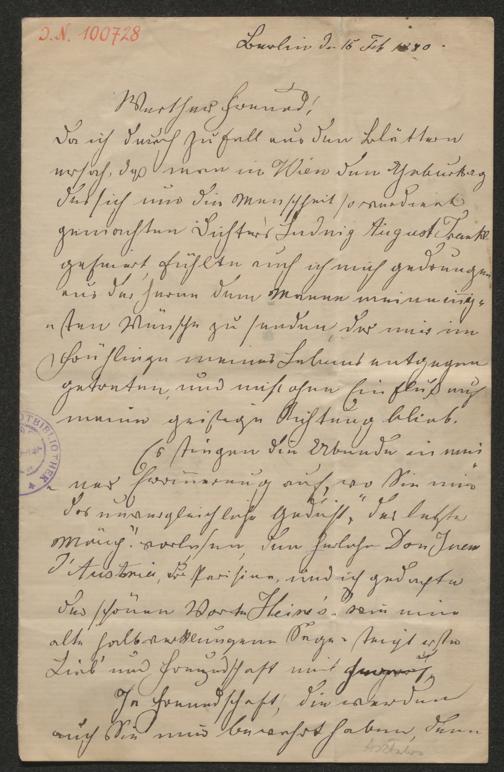 J.N. 100728
Berlin d. 15 Feb 1880.
Werther Freund!
Da ich durch Zufall aus den Blättern
ersah, daß man in Wien den Geburtstag
des sich um die Menschheit so verdient
gemachten Dichters Ludwig August Frankl
gefeiert, fühlte auch ich mich gedrungen
aus der Ferne dem Manne meine innig-
sten Wünsche zu senden, der mir im
Frühlinge meines Lebens entgegen
getreten, und nicht ohne Einfluß auf
meine geistige Richtung blieb.
Es stiegen die Abende in mei
ner Erinnerung auf, wo Sie mir
das unvergleichliche Gedicht, "der letzte
Mönch" vorlasen, den Don Juan
d'Austria, die Parisina, und ich gedachte
der schönen Worte Heine's "wie eine
alte halbverklungene Sage - steigt erste
Lieb' und Freundschaft mit
Ja Freundschaft, die werden
auch Sie mir bewahrt haben, denn